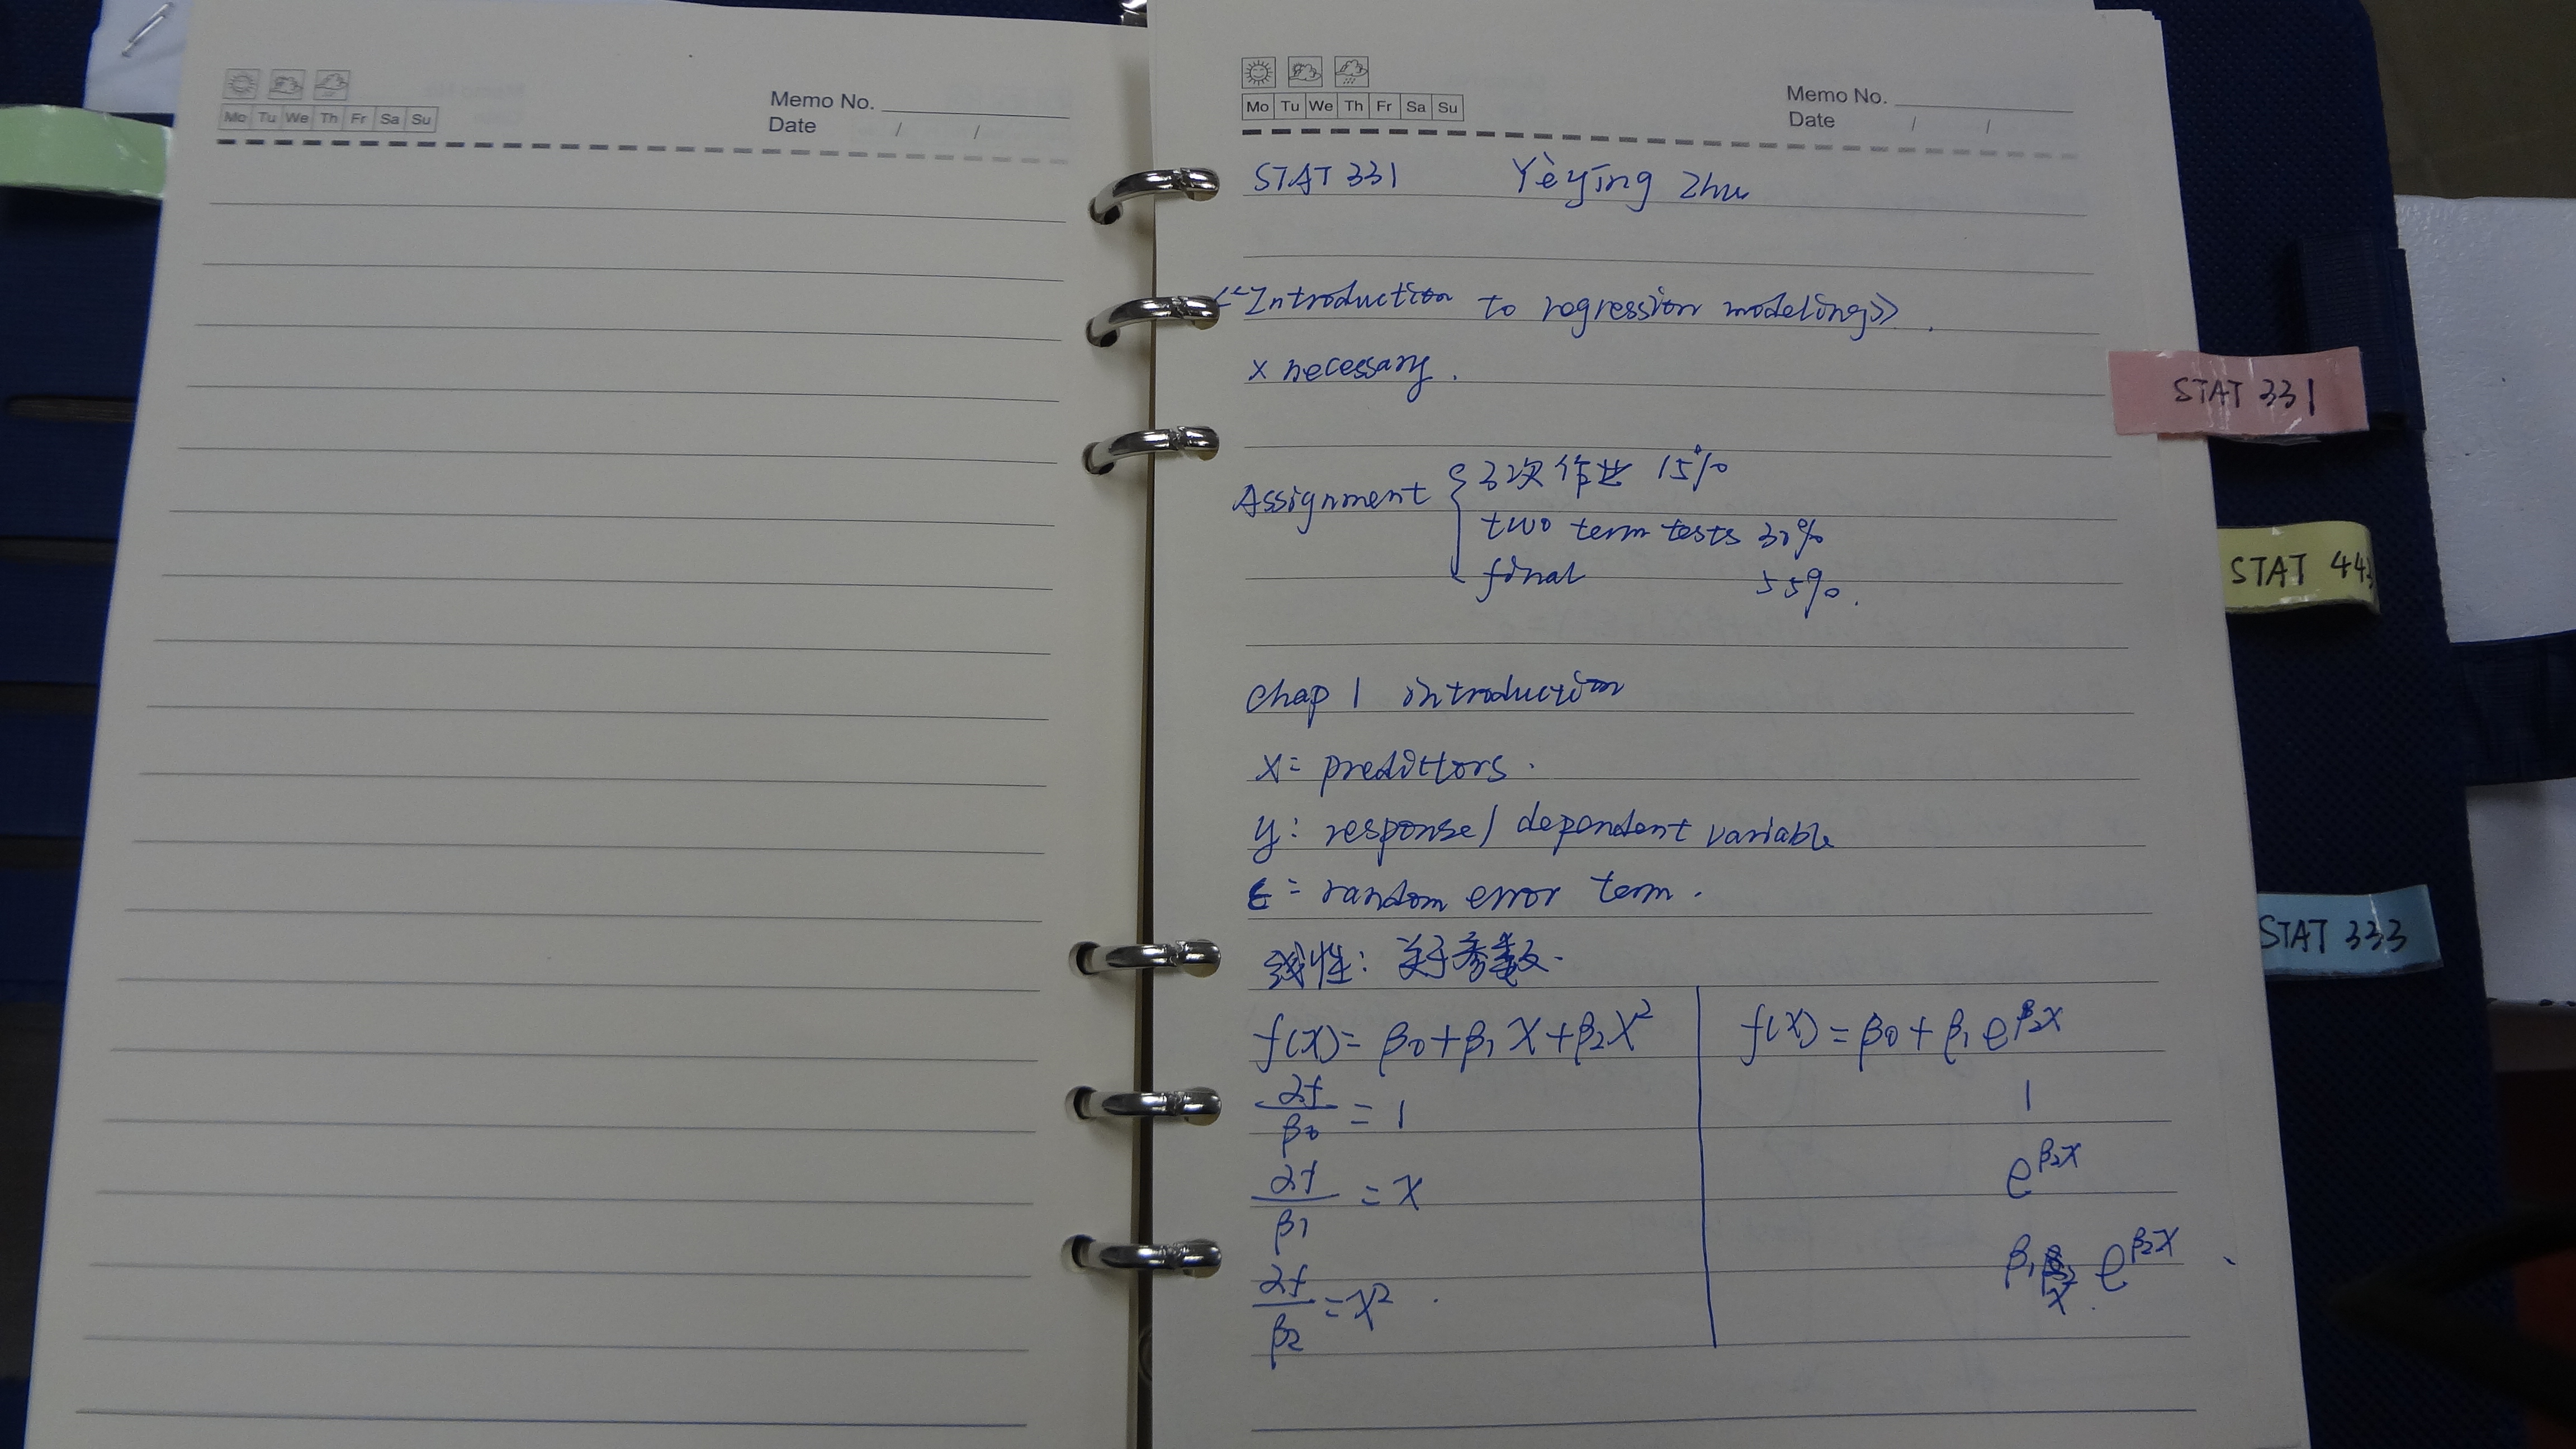 Mo Tu We Th Fr Sa Su
Memo No.
Date / /
Mo Tu We Th Fr Sa Su
Memo No.
Date / /
STAT 331 Yèyīng Zhu
<<Introduction to regression modeling>>.
x necessary.
Assignment { 3次作业 15%
two term tests 30%
final 55%.
chap 1 introduction
x: predittors.
y: response/ dependent variable
ε: random error term.
线性: 关于参数.
f(x)= β0+β1x+β2x² | f(x)=β0+β1e^β2x
∂f/β0 = 1 | 1
∂f/β1 = x | e^β2x
∂f/β2 = x². | β1 x e^β2x.
STAT 331
STAT 44
STAT 333